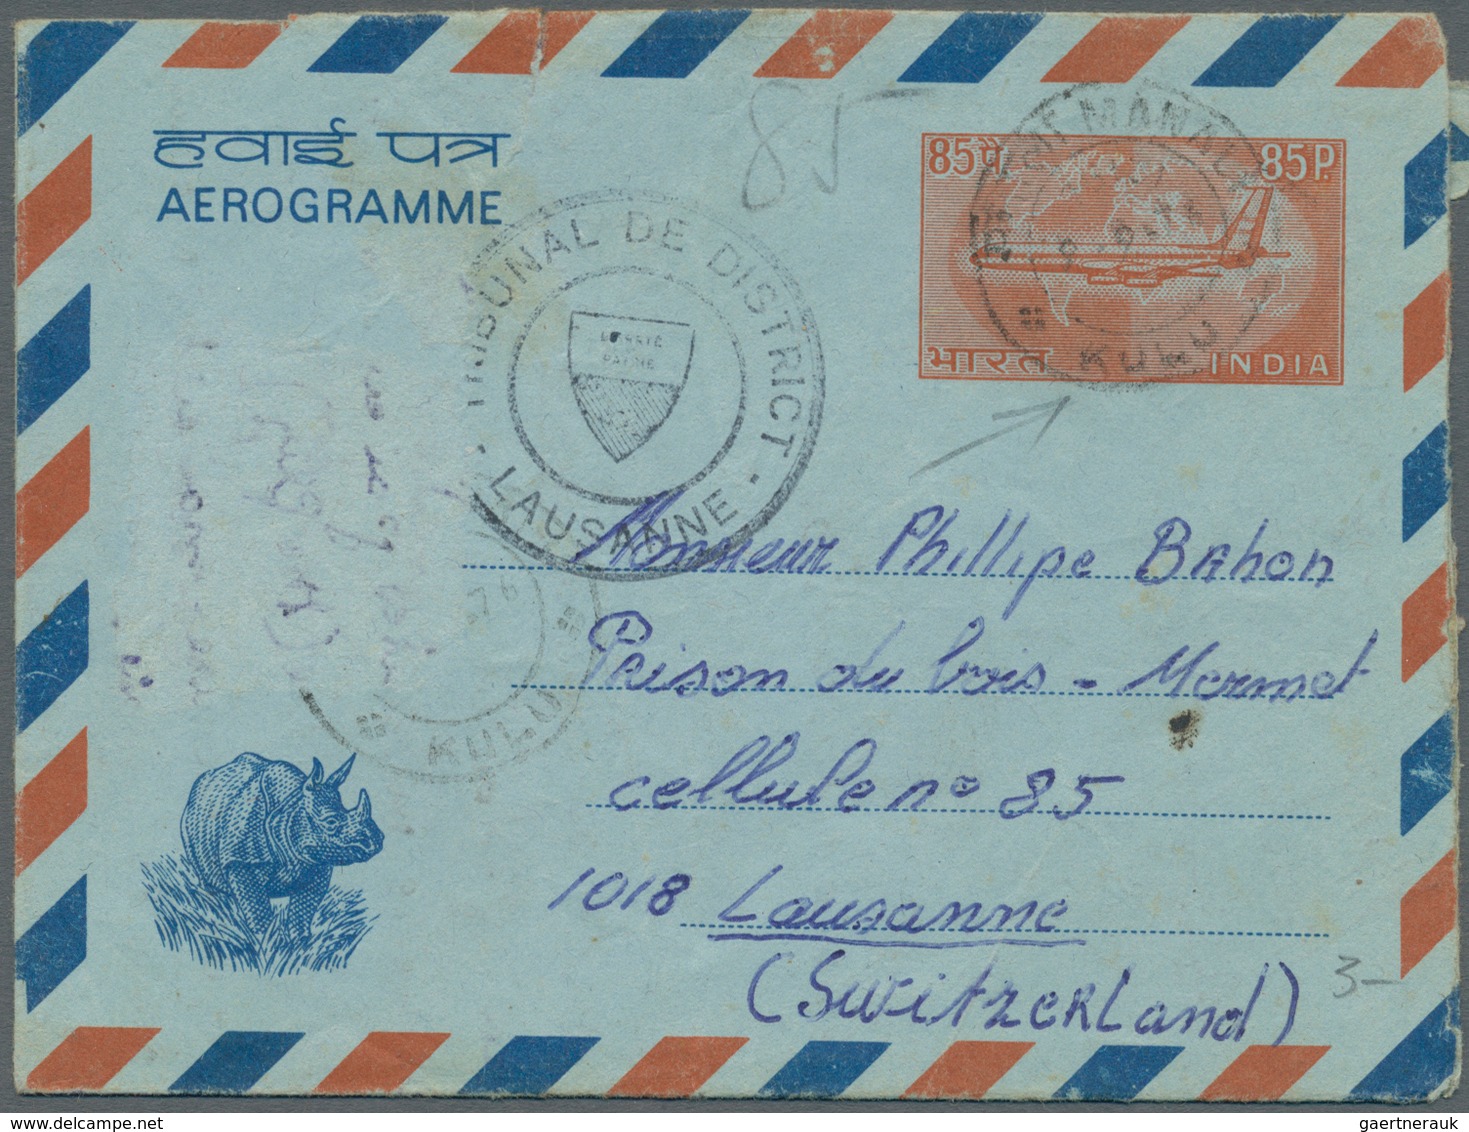 हवाई पत्र
AEROGRAMME
85
85 पै
85 P.
भारत
INDIA
MANAL
KULU
TRIBUNAL DE DISTRICT
- LAUSANNE -
LIBERTÉ
PATRIE
Monsieur Phillipe BAhon
Prison du bois - Mermet
cellule no 85
1018 Lausanne
(SwitzerLand)
3-
76
KULU
gaertnerauk@delcampe.net